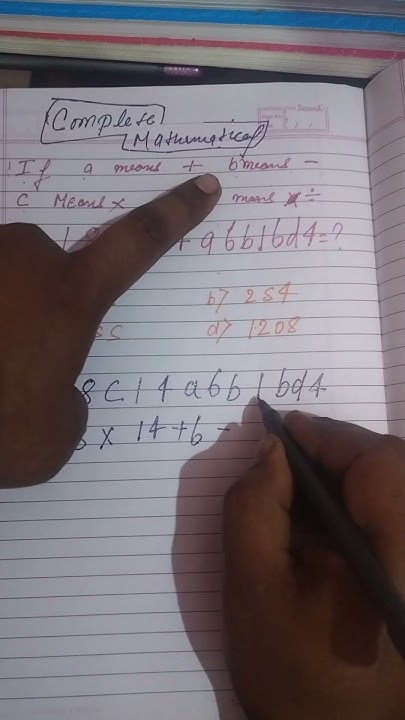 Complete
Mathematical
If a means + b means -
C Means × means ÷
+ a 6 b 1 6 d 4 = ?
b) 254
d) 1208
8 C 1 4 a 6 b 1 6 d 4
× 14 + 6 -